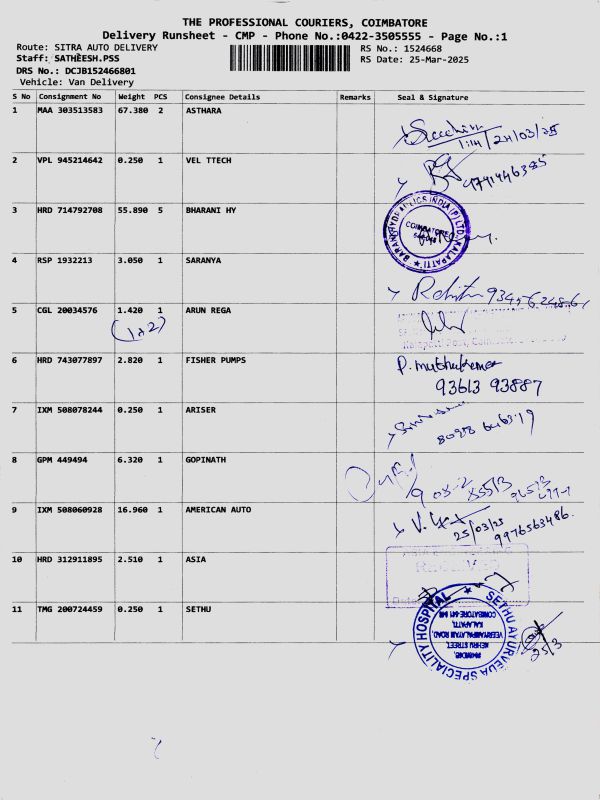 THE PROFESSIONAL COURIERS, COIMBATORE
Delivery Runsheet - CMP - Phone No.:0422-3505555 - Page No.:1
Route: SITRA AUTO DELIVERY RS No.: 1524668
Staff: SATHEESH.PSS RS Date: 25-Mar-2025
DRS No.: DCJB152466801
Vehicle: Van Delivery
S No Consignment No Weight PCS Consignee Details Remarks Seal & Signature
1 MAA 303513583 67.380 2 ASTHARA
2 VPL 945214642 0.250 1 VEL TTECH
3 HRD 714792708 55.890 5 BHARANI HY
COIMBATORE
4 RSP 1932213 3.050 1 SARANYA
5 CGL 20034576 1.420 1 ARUN REGA
(1+2)
6 HRD 743077897 2.820 1 FISHER PUMPS
P. muthukumar
93613 93887
7 IXM 508078244 0.250 1 ARISER
8 GPM 449494 6.320 1 GOPINATH
9 IXM 508060928 16.960 1 AMERICAN AUTO
25/03/25
9976563486.
10 HRD 312911895 2.510 1 ASIA
11 TMG 200724459 0.250 1 SETHU
SETHU AYURVEDA SPECIALITY HOSPITAL
NEHRU STREET,
VEERIYAMPALAYAM ROAD,
KALAPATTI,
25/3